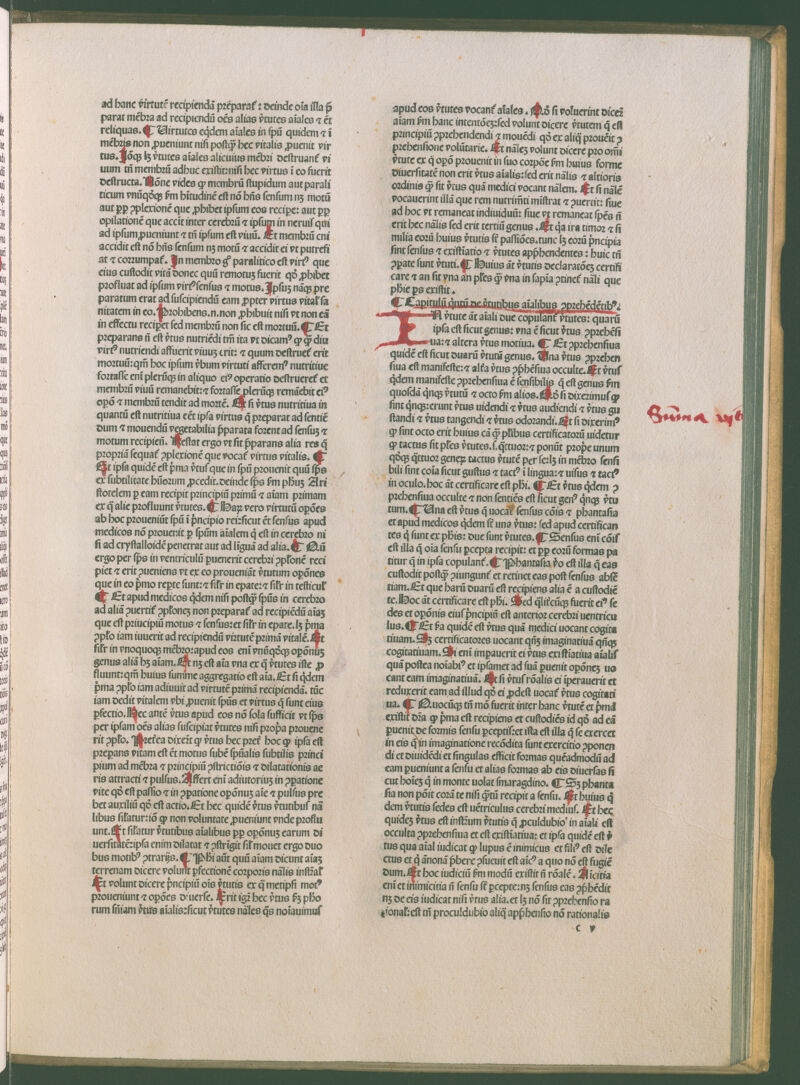 ad hanc v̄tutē recipiendā p̄parat᷒ : deinde oīa illa p̄
parat mēbra ad recipiendū oēs alias v̄tutes aīales ⁊ ēt
reliquas. ¶ Uirtutes eq̄dem aīales in spū quidem ⁊ ī
mēbris non ꝓueniunt nisi postꝙ̄ hec vitalis ꝓuenit vir
tus. Ioq̄ꝫ lꝫ v̄tutes aīales alicuius mēbri destruant᷒ vi
uum tn̄ membrū adhuc existit: nisi hec virtus ī eo fuerit
destructa. Nōne vides ꝙ membrū stupidum aut parali
ticum vnūq̄ꝫ f̄m hītudinē est nō hn̄s sensum nꝫ motū
aut ꝓꝑ ꝯplexionē que ꝓhibet ipsum eos recipe: aut ꝓꝑ
opilationē que accīt inter cerebrū ⁊ ipsum in neruis qui
ad ipsum ꝓueniunt ⁊ tn̄ ipsum est viuū. Et membrū cui
accidit est nō hn̄s sensum nꝫ motū ⁊ accidit ei vt putrefi
at ⁊ corrumpat᷒. In membro gͦ paralitico est virtꝰ que
eius custodit vitā donec quū remotus fuerit qd̄ ꝓhibet
ꝓfluat ad ipsum virtꝰ sensus ⁊ motus. Ipsuꝫ nāqꝫ pre
paratum erat ad suscipiendū eam ꝓpter virtus vital̓ sa
nitatem in eo. Prohibens .n. non ꝓhibuit nisi vt non eā
in effectu recipet sed membrū non sic est mortuū. ¶ Et
preparans n̄ est v̄tus nutriēdi tm̄ ita vt dicamꝰ ꝙ q̄ diu
virtꝰ nutriendi affuerit viuuꝫ erit: ⁊ quum destruet᷒ erit
mortuū: qm̄ hoc ipsum v̄bum virtuti afferemꝰ nutritiue
fortasse enī plerūqꝫ in aliquo eiꝰ operatio destrueret᷒ et
membrū viuū remanebit: ⁊ fortasse plerūqꝫ remāebit eiꝰ
opō ⁊ membrū tendit ad mortē. Et si v̄tus nutritiua in
quantū est nutritiua eēt ipsa virtus q̄ preparat ad sentiē
dum ⁊ mouendū vegetabilia p̄parata forent ad sensuꝫ ⁊
motum recipiēn̄. Restat ergo vt sit p̄parans alia res q̄
propriā sequat᷒ ꝯplexionē que vocat᷒ virtus vitalis. ¶
Et ipsa quidē est p̄ma v̄tus que in spū prouenit quū sp̄s
ex subtilitate hūorum ꝓcedit. deinde sp̄s f̄m ph̄uꝫ Ari
stotelem ꝑ eam recipit principiū primū ⁊ aīam primam
ex q̄ alie profluunt v̄tutes. ¶ Haꝝ vero virtutū opōes
ab hoc proueniūt spū ī p̄ncipio rei: sicut ēt sensus apud
medicos nō prouenit ꝑ spūm aīalem q̄ est in cerebro ni
si ad crystalloidē penetrat aut ad linguā ad alia. ¶ Qū
ergo pars sp̄s in ventriculū puenerit cerebri ꝯplonē reci
piet ⁊ erit ꝓueniens vt ex eo proueniāt v̄tutum opōnes
que in eo p̄mo repte sunt: ⁊ sil̓r in epate: ⁊ sil̓r in testiculꝰ
¶ Et apud medicos q̄dem nisi postꝙ̄ sp̄us in cerebro
ad aliā ꝓuertit᷒ ꝯplonꝫ non preparat᷒ ad recipiēdū aīaꝫ
que est prīcipiū motus ⁊ sensus: et sil̓r in epate. lꝫ p̄ma
ꝯplō iam iuuerit ad recipiendū virtutē primā vitalē. Et
sil̓r in vnoquoqꝫ mēbro: apud eos enī vnūqd̄qꝫ opōnuꝫ
genus aliā hꝫ aīam. Et nꝫ est aīa vna ex q̄ v̄tutes iste ꝓ
fluunt: qm̄ huius sum̄e aggregatio est aīa. Et si q̄dem
p̄ma ꝯplō iam adiuuit ad virtutē primā recipiendā. tūc
iam dedit vitalem vbi ꝓuenit sp̄us et virtus q̄ sunt eius
pfectio. Hec autē v̄tus apud eos nō sola sufficit vt sp̄s
per ipsam oēs alias suscipiat v̄tutes nisi propͥa prouene
rit ꝯplō. Pretea dixert᷒ ꝙ v̄tus hec pret᷒ hoc ꝙ ipsa est
prepans vitam est ēt motus substē sp̄ualis subtilis princi
pium ad mēbra ⁊ principiū ꝯstrictiōis ⁊ dilatationis ae
ris attracti ⁊ pulsus. Affert enī adiutoriuꝫ in ꝯpatione
vite qd̄ est passio ⁊ in ꝯpatione opōnuꝫ aīe ⁊ pulsus pre
bet auxiliū qd̄ est actio. Et hec quidē v̄tus v̄tutibusꝰ nā
libus sil̓atur: iō ꝙ non voluntate ꝓueniunt vnde proflu
unt. Et sil̓atur v̄tutibus aīalibus ꝓꝑ opōnuꝫ earum di
uersitatē: ipsa enim dilatat ⁊ ꝯstrigit sil̓ mouet ergo duo
bus motibꝰ ꝯtrarijs. ¶ Ph̄i aūt quū aīam dicunt aīaꝫ
terrenam dicere volunt ꝑfectionē corporis nālis instr̄al̓
Et volunt dicere p̄ncipiū oīs v̄tutis ex q̄ metipsi motꝰ
proueniunt ⁊ opōes diuerse. Erit igr̄ hec v̄tus f̄ꝫ pho
rum sn̄iam v̄tus aīalis: sicut v̄tutes nāles q̄s noīauimus
apud eos v̄tutes vocant᷒ aīales. Qd̄ si voluerint dicerꝫ
aīam f̄m hanc intentōeꝫ: sed volunt dicere v̄tutem q̄ est
principiū ꝯprehendendi ⁊ mouēdi qd̄ ex aliq̄ prouēit ꝯ
prehensione volūtarie. Et nāleꝫ volunt dicere pro omī
v̄tute ex q̄ opō prouenit in suo corpōe f̄m huius forme
diuersitatē non erit v̄tus aīalis: sed erit nālis ⁊ altioris
ordinis ꝙ̄ sit v̄tus quā medici vocant nālem. Et si nālē
vocauerint illā que rem nutrimēti mīstrat ⁊ ꝓuertit: siue
ad hoc vt remaneat indiuiduū: siue vt remaneat spēs n̄
erit hec nālis sed erit tertiū genus. Et q̄a ira timor ⁊ si
milia eorū huius v̄tutis st̄ passiōes. tunc lꝫ eorū p̄ncipia
sint sensus ⁊ existīatio ⁊ v̄tutes apprhendentes: huic tn̄
ꝯpate sunt v̄tuti. ¶ Huius āt v̄tutis declaratōeꝫ certifi
care ⁊ an sit vna an pl̄es ꝙ̄ vna in sapīa ꝯtinet᷒ nāli que
phīe ps existit.
¶ Capitulū q̄ntū de v̄tutibus aīalibus ꝯprehēdētibꝰ.
I N v̄tute āt aīali due copulant᷒ v̄tutes: quarū
ipsa est sicut genus: vna ē sicut v̄tus ꝯprehēsi
ua: ⁊ altera v̄tus motiua. ¶ Et ꝯprehensiua
quidē est sicut duarū v̄tutū genus. Una v̄tus ꝯprehen
siua est manifeste: ⁊ alt᷒a v̄tus ꝯp̄hēsiua occulte. Et v̄tus
q̄dem manifeste ꝯprehensiua ē sensibilis q̄ est genus f̄m
quosdā qn̄qꝫ v̄tutū ⁊ octo f̄m alios. Qd̄ si dixerimus ꝙ
sint qn̄qꝫ: erunt v̄tus uidendi ⁊ v̄tus audiendi ⁊ v̄tus gu
standi ⁊ v̄tus tangendi ⁊ v̄tus odorandi. Et si dixerimꝰ
ꝙ sunt octo erit huius cā ꝙ pl̄ibus certificatorū uidetur
ꝙ tactus sit pl̄es v̄tutes. s. q̄ttuor: ⁊ ponūt prope unum
qd̄qꝫ q̄ttuor geneꝝ tactus v̄tutē per se: lꝫ in mēbro sensi
bili sint coīa sicut gustus ⁊ tactꝰ ī lingua: ⁊ uisus ⁊ tactꝰ
in oculo. hoc āt certificare est ph̄i. ¶ Et v̄tus q̄dem ꝯ
prehensiua occulte ⁊ non sentiēs est sicut genꝰ qn̄qꝫ v̄tu
tum. ¶ Una est v̄tus q̄ uocat᷒ sensus cōis ⁊ phantasia
et apud medicos q̄dem st̄ una v̄tus: sed apud certifican
tes q̄ sunt ex ph̄is: due sunt v̄tutes. ¶ Sensus eni cōis
est illa q̄ oīa sensu pcepta recipit: et ꝓꝑ eorū formas pa
titur q̄ in ipsa copulant᷒. ¶ Phantasia v̄o est illa q̄ eas
custodit postꝙ̄ ꝯiungunt᷒ et retinet eas post sensus absē
tiam. Et que harū duarū est recipiens alia ē a custodiē
te. Hoc āt certificare est ph̄i. Sed q̄lit᷒cūqꝫ fuerit eiꝰ se
des et opōnis eius p̄ncipiū est anterior cerebri uentricu
lus. ¶ Et s̄a quidē est v̄tus quā medici uocant cogita
tiuam. Sꝫ certificatores uocant q̄nqꝫ imaginatiuā q̄n̄qꝫ
cogitatiuam. Si enī impauerit ei v̄tus existīatiua aīalis
quā postea noīabiꝰ et ipsamet ad suā puenit opōneꝫ uo
cant eam imaginatiuā. Et si v̄tus rōalis ei iperauerit et
reduxerit eam ad illud qd̄ ei ꝓdest uocat᷒ v̄tus cogitati
ua. ¶ Quocūqꝫ tn̄ mō fuerit inter hanc v̄tutē et p̄mā
existit dr̄a ꝙ p̄ma est recipiens et custodiēs id qd̄ ad eā
puenit de formis sensu pceptis: et ista est illa q̄ se exercet
in eis q̄ in imaginatione recōdita sunt exercitio ꝯponen
di et diuidēdi et singulas efficit formas quēadmodū ad
eam pueniunt a sensu et alias formas ab eis diuersas si
cut hoīeꝫ q̄ in monte uolat smaragdino. ¶ Sꝫ phanta
sia non pōit corā te nisi q̄tū recipit a sensu. Et huius q̄
dem v̄tutis sedes est uētriculus cerebri mediuꝰ. Et hec
quideꝫ v̄tus est instr̄m v̄tutis q̄ proculdubioꝰ in aīali est
occulta ꝯprehensiua et est existīatiua: et ipsa quidē est v̄
tus qua aīal iudicat ꝙ lupus ē inimicus et filiꝰ est dile
ctus et q̄ ānonā p̄bere ꝯsueuit est aīcꝰ a quo nō est fugiē
dum. Et hoc iudiciū f̄m modū existit n̄ rōalē. Aīcitia
enī et inimicitia n̄ sensu st̄ pcepte: nꝫ sensus eas ꝯp̄hēdit
nꝫ de eis iudicat nisi v̄tus alia. et lꝫ nō sit ꝯprehensio ra
ionalꝭ: est tn̄ proculdubio aliq̄ app̄hensio nō rationalis
c v